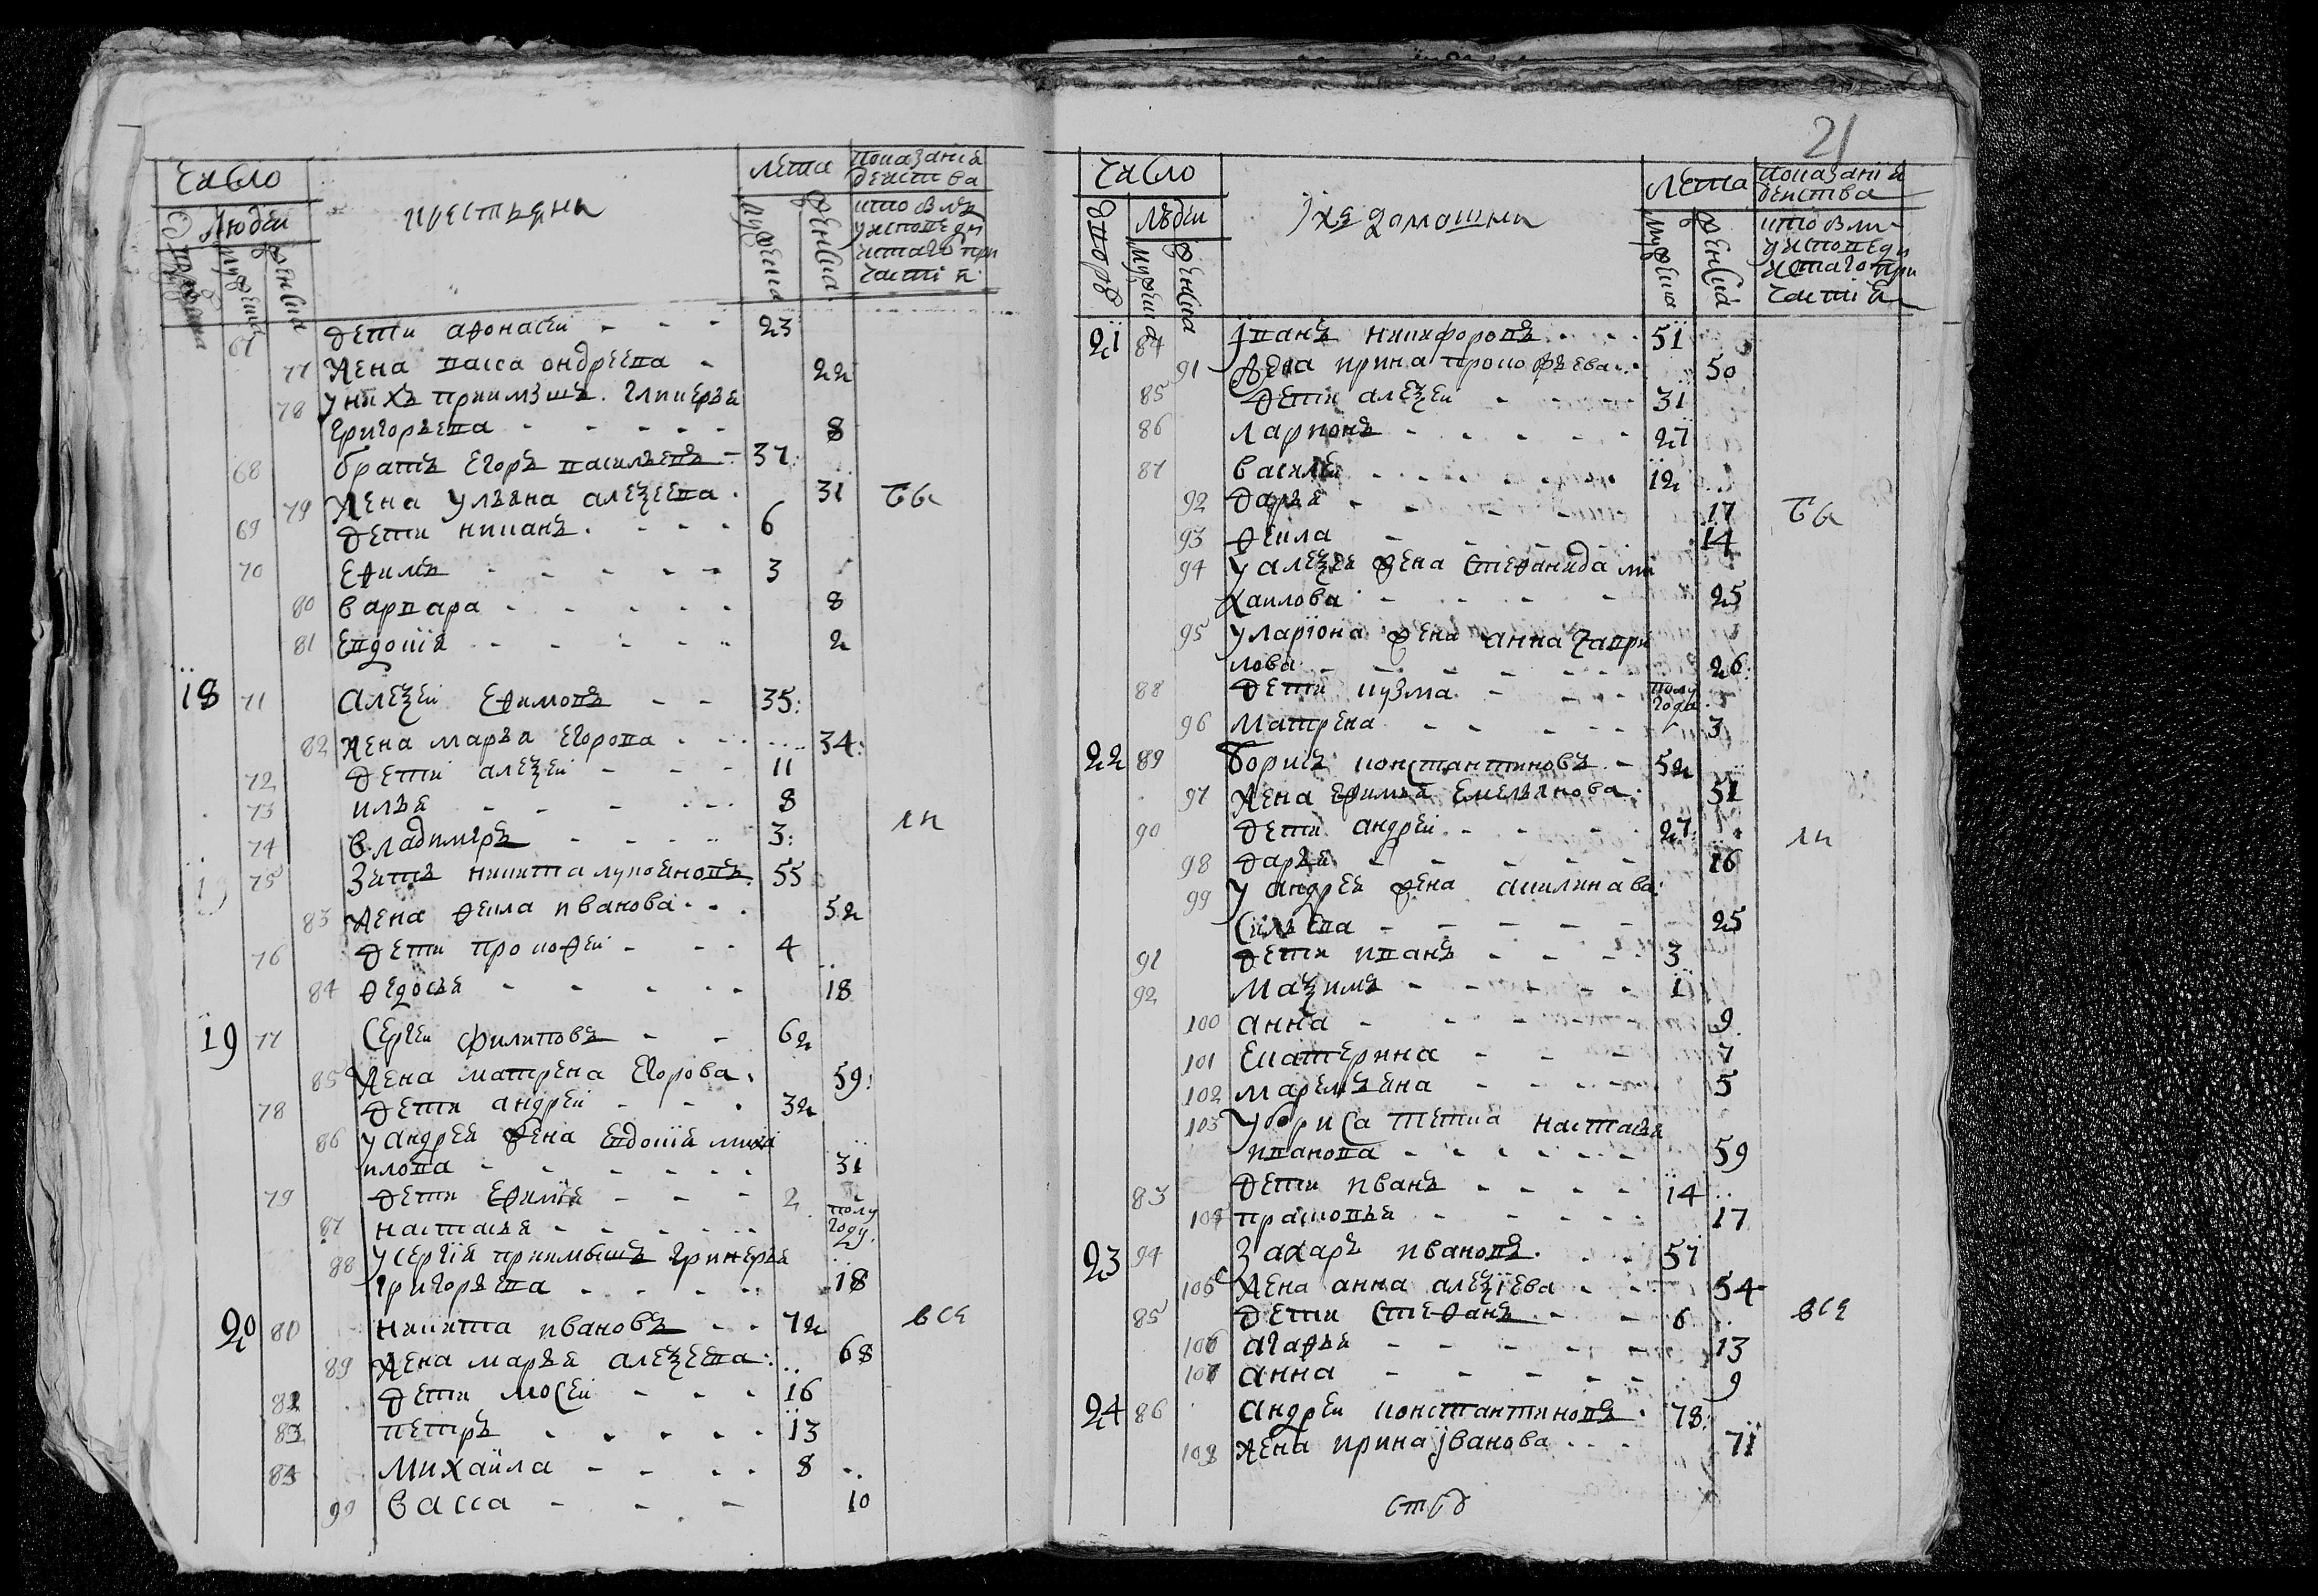 число
людей
дворовъ
мужеска
женска
крестьяня
лета
мужеска
женска
показания
действа
кто былъ
у исповеди
и стаго при
частия
67 дети афонасеи 23
77 жена васса ондреева 22
78 у нихъ приимышъ гликерья
григорьева 8
68 братъ егоръ васильевъ 37
79 жена ульяна алеѯеева 31
69 дети никанъ 6
70 ефимъ 3
80 варвара 8
81 евдокия 2
бы
18 71 алеѯеи ефимовъ 35
82 жена марья егорова 34
72 дети алеѯеи 11
73 илья 8
74 владимиръ 3
ли
19 75 зять никита лукояновъ 55
83 жена фекла иванова 52
76 дети прокофеи 4
84 федосья 18
19 77 сергеи филиповъ 62
85 жена матрена егорова 59
78 дети андреи 32
86 у андрея жена евдокия миха
илова 31
79 дети ефимъ 2
87 настасья полу
году
88 у сергия приимышъ
григорьева 18
20 80 никита ивановъ 72
89 жена марья алеѯеева 68
82 дети мосеи 16
83 петръ 13
84 михаила 8
90 васса 10
все
21
число
дворовъ
людеи
мужеска
женска
ихъ домашни
лета
мужеска
женска
показания
деиства
кто были
у исповеди
и стаго при
частия
21 84 иванъ никифоровъ 51
91 жена ирина прокофьева 50
85 дети алеѯеи 31
86 ларионъ 27
87 василеи 12
92 дарья 17
93 фекла 14
бы
94 у алеѯея жена стефанида ми
хаилова 25
95 у лариона жена анна гаври
лова 26
88 дети кузма полу
года
96 матрена 3
22 89 борисъ константиновъ 52
97 жена ефимья емельянова 51
90 дети андреи 27
98 дарья 16
ли
99 у андрея жена акилина ва
сильева 25
91 дети иванъ 3
92 маѯимъ 1
100 анна 9
101 екатерина 7
102 маремьяна 5
103 у бориса тетка настасья
иванова 59
83 дети иванъ 14
104 прасковья 17
23 94 захаръ ивановъ 57
105 жена анна алеѯиева 54
85 дети стефанъ 6
106 агафья 13
107 анна 9
все
24 86 андреи константиновъ 78
108 жена ирина иванова 71